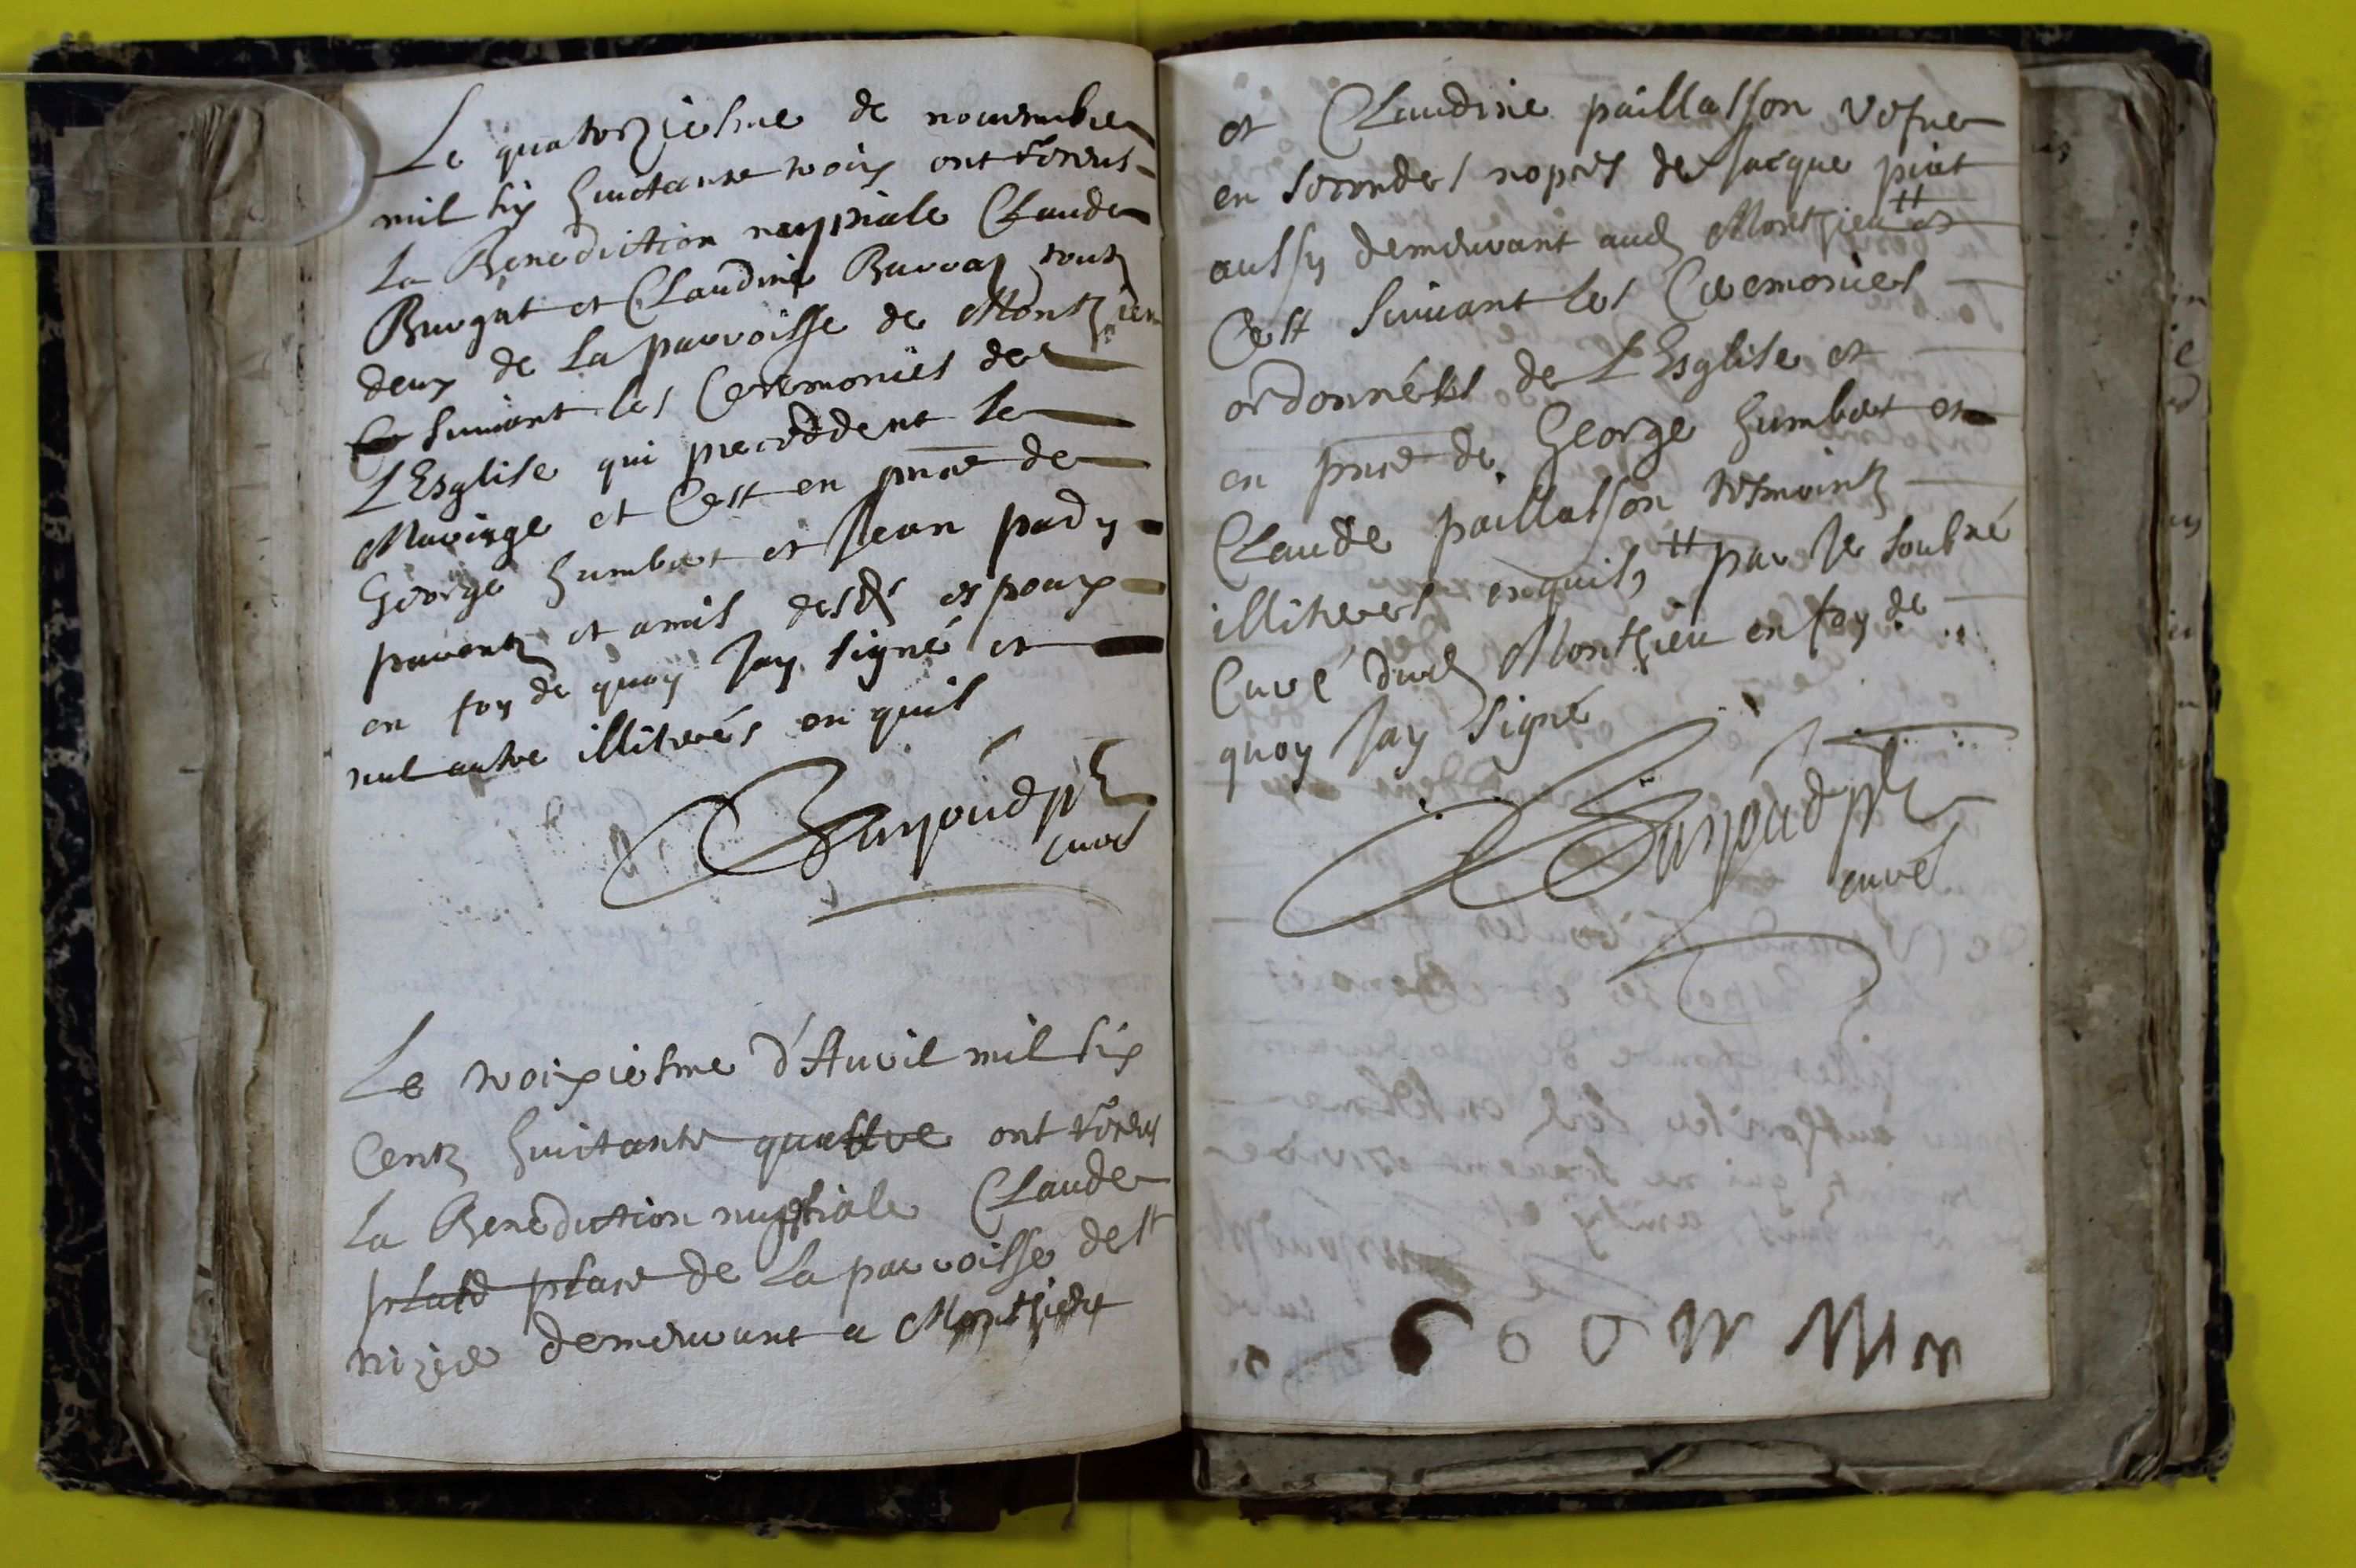 Le quatorziesme de nouembre
mil six huictante trois ont receus
la Benediction nuppsiale Claude
Burgat et Claudine Barray tous
deux de la parroisse de Montzieu
suiuant les Ceremonies de
L'Esglise qui preceddent le
Mariage et Cest en pñce de
George humbert et Jean pady
parentz et amis desds espoux
en foy de quoy Jay signé et
nul autre illiterés en quis
curé
Le troixiesme d'Auril mil six
Centz huictante quattre ont receus
la Benediction nuptiale Claude
de la parroisse de st
nizier demeurant a Montzieu
et Claudine paillasson vefue
en secondes nopces de Jacque piat
aussy demeurant aud Montzieu et
Cest suiuant les Ceremonies
ordonnées de L'Esglise et
en pnce de George humbert et
Claude paillasson tesmointz
illiteres enquis, par Je soubné
Curé dud Montzieu en foy de
quoy Jay signé
curé